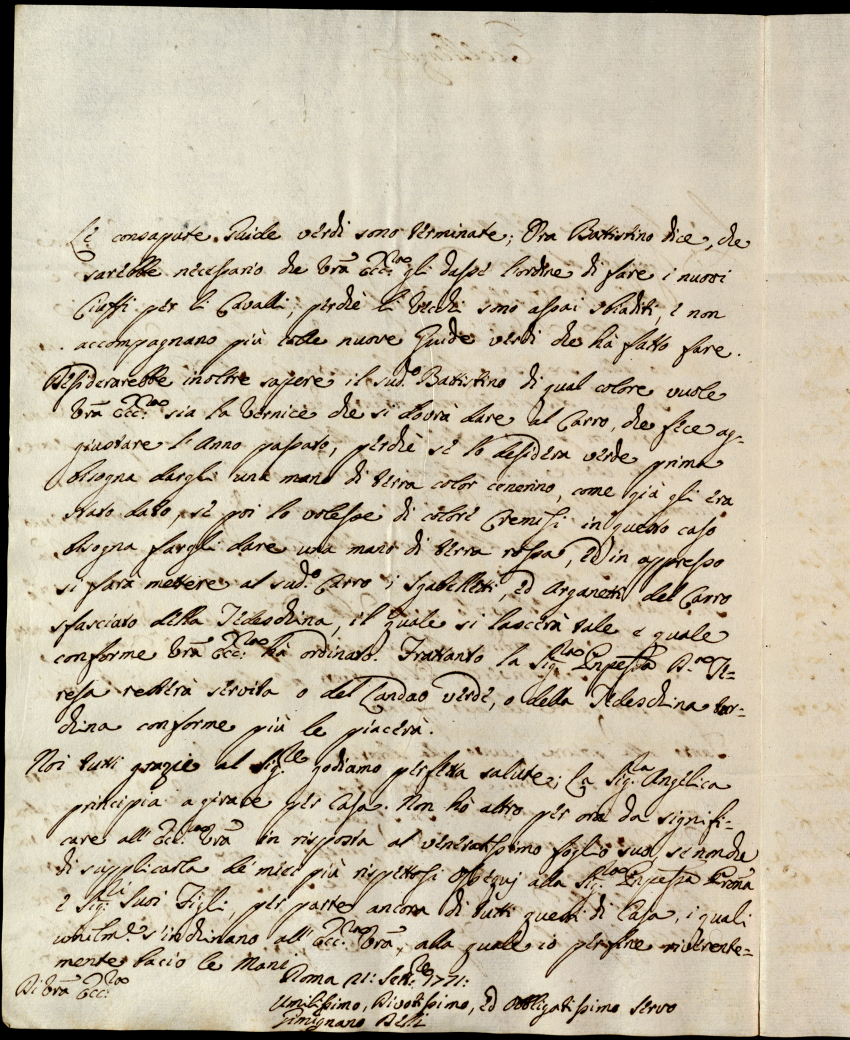 Le consapute Guide verdi sono terminate; Ora Battistino dice, che
sarebbe necessario che Vrã Ecc.za gli dasse l'ordine di fare i nuovi
Ciuffi per li Cavalli; perchè li vecchi sono assai sbiaditi, e non
accompagnano più colle nuove Guide verdi che hà fatto fare.
Desiderarebbe inoltre sapere il sud.o Battistino di qual colore vuole
Vrã Ecc.za sia la vernice che si dovrà dare al Carro, che fece ag-
giustare l'Anno passato, perchè se lo desidera verde prima
bisogna dargli una mano di terra color cenerino, come già gli era
stato dato, se poi lo volesse di colore Cremisi in questo caso
bisogna fargli dare una mano di terra rossa, ed in appresso
si farà mettere al sud.o Carro i Sgabelletti, ed Arganetti del Carro
sfasciato della Tedeschina, il quale si lascerà tale e quale
conforme Vrã Ecc.za hà ordinato. Frattanto la Sig.ra Ppessa D.na Te-
resa resterà servita o del Landao verde, o della Tedeschina tur-
china conforme più le piacerà.
Noi tutti grazie al Sig.re godiamo perfetta salute; La Sig.ra Angelica
principia a girare per Casa. Non hò altro per ora da signifi-
care all' Ecc.za Vrã in risposta al veneratissimo foglio suo, se non che
di supplicarla de miei più rispettosi ossequj alla Sig.ra Ppessa Prona
e Sig.li Suoi Figli, per parte ancora di tutti questi di Casa, i quali
umilm.e s'inchinano all' Ecc.za Vrã, alla quale io per fine riverente=
mente bacio le Mani.
Di Vrã Ecc.za
Roma 21: Sett.re 1771:
Umilissimo, Divotissimo, ed Obbligatissimo Servo
Gimignano Belli